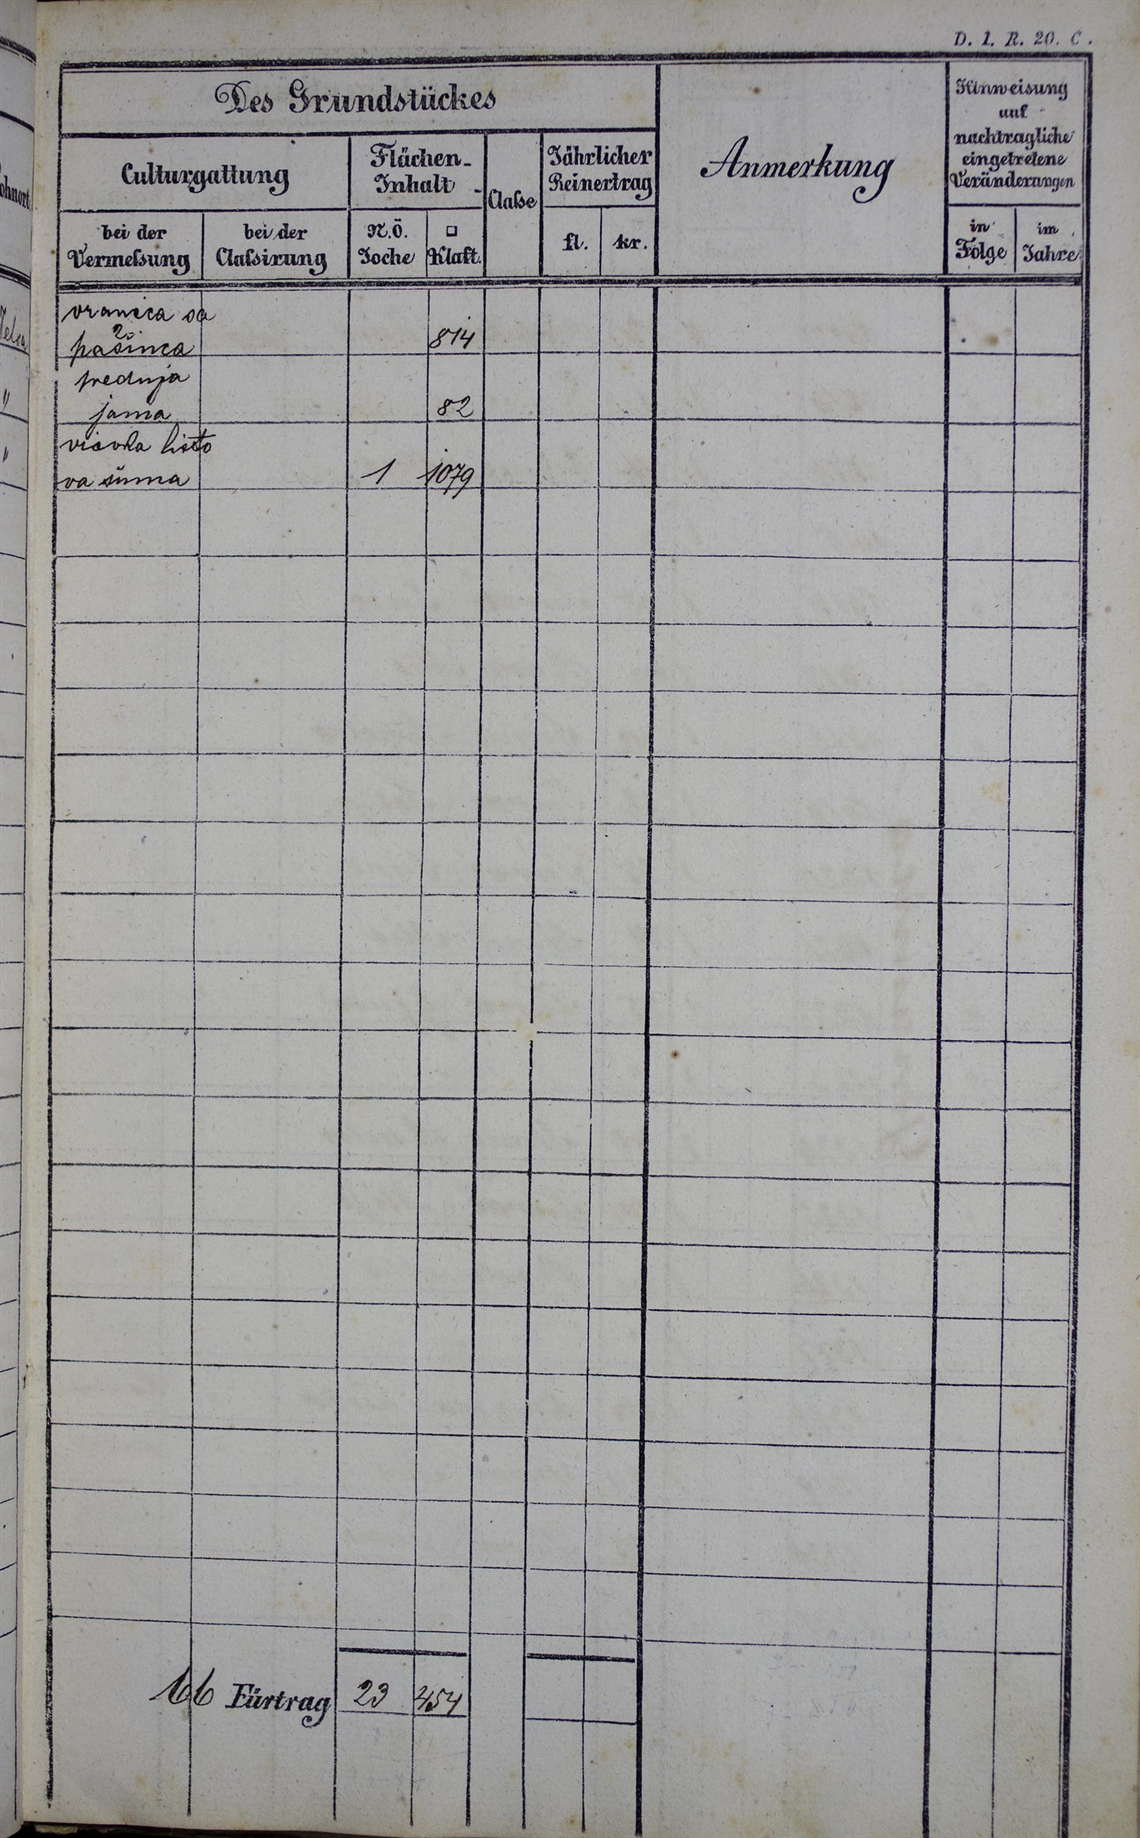 D. 1. R. 20. C.
Des Grundstückes
Culturgattung
Flächen-
Inhalt
Claße
Jährlicher
Reinertrag
Anmerkung
Hinweisung
auf
nachtragliche
eingetretene
Veränderungen
bei der
Vermeßung
bei der
Claßirung
N.Ö.
Joche
□
Klaft.
fl.
kr.
in
Folge
im
Jahre
pašinca 814
jama 82
va šuma 1 1079
66 Fürtrag 23 454